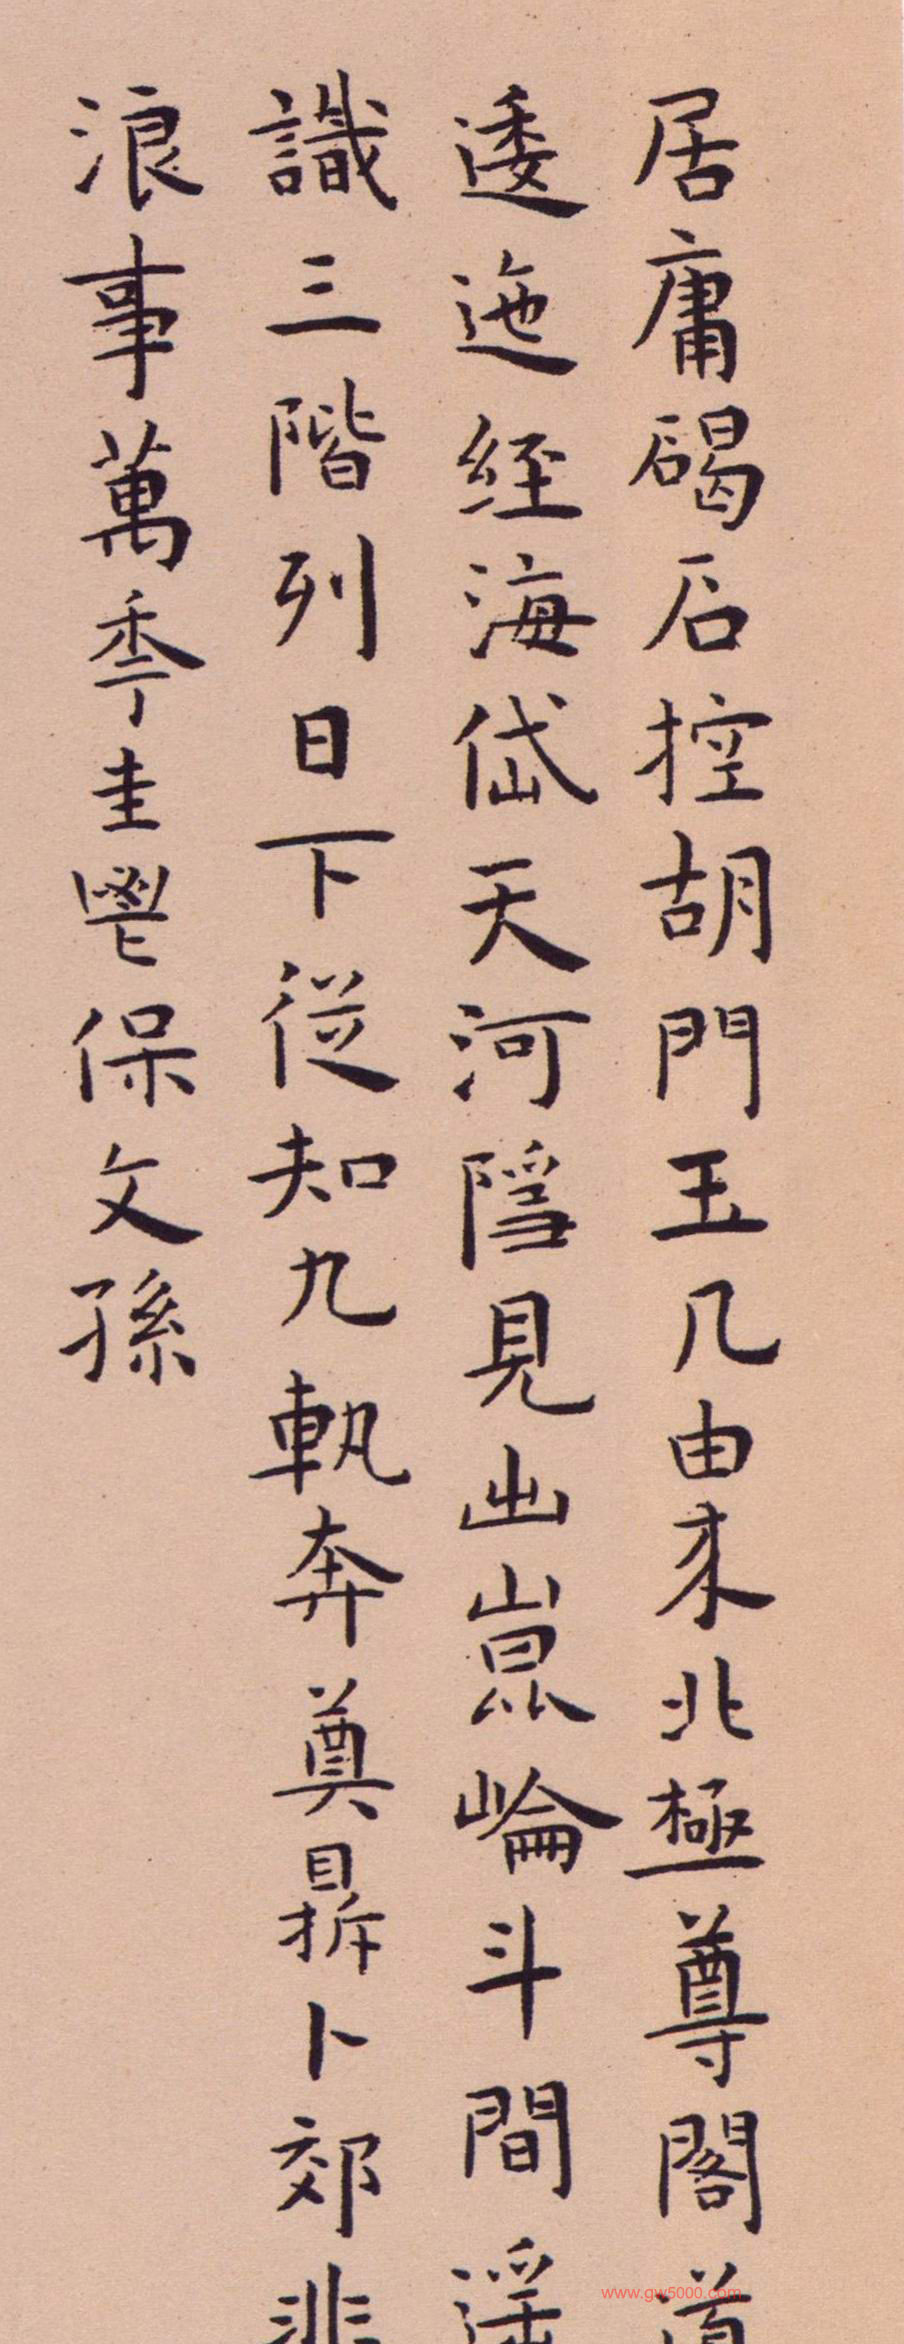 居庸碣石控胡門玉几由来北極尊閣道
逶迤經海岱天河隱見出崑崙斗間遥
識三階列日下從知九軌奔奠鼎卜郊非
浪事萬季圭鬯保文孫
www.gw5000.com